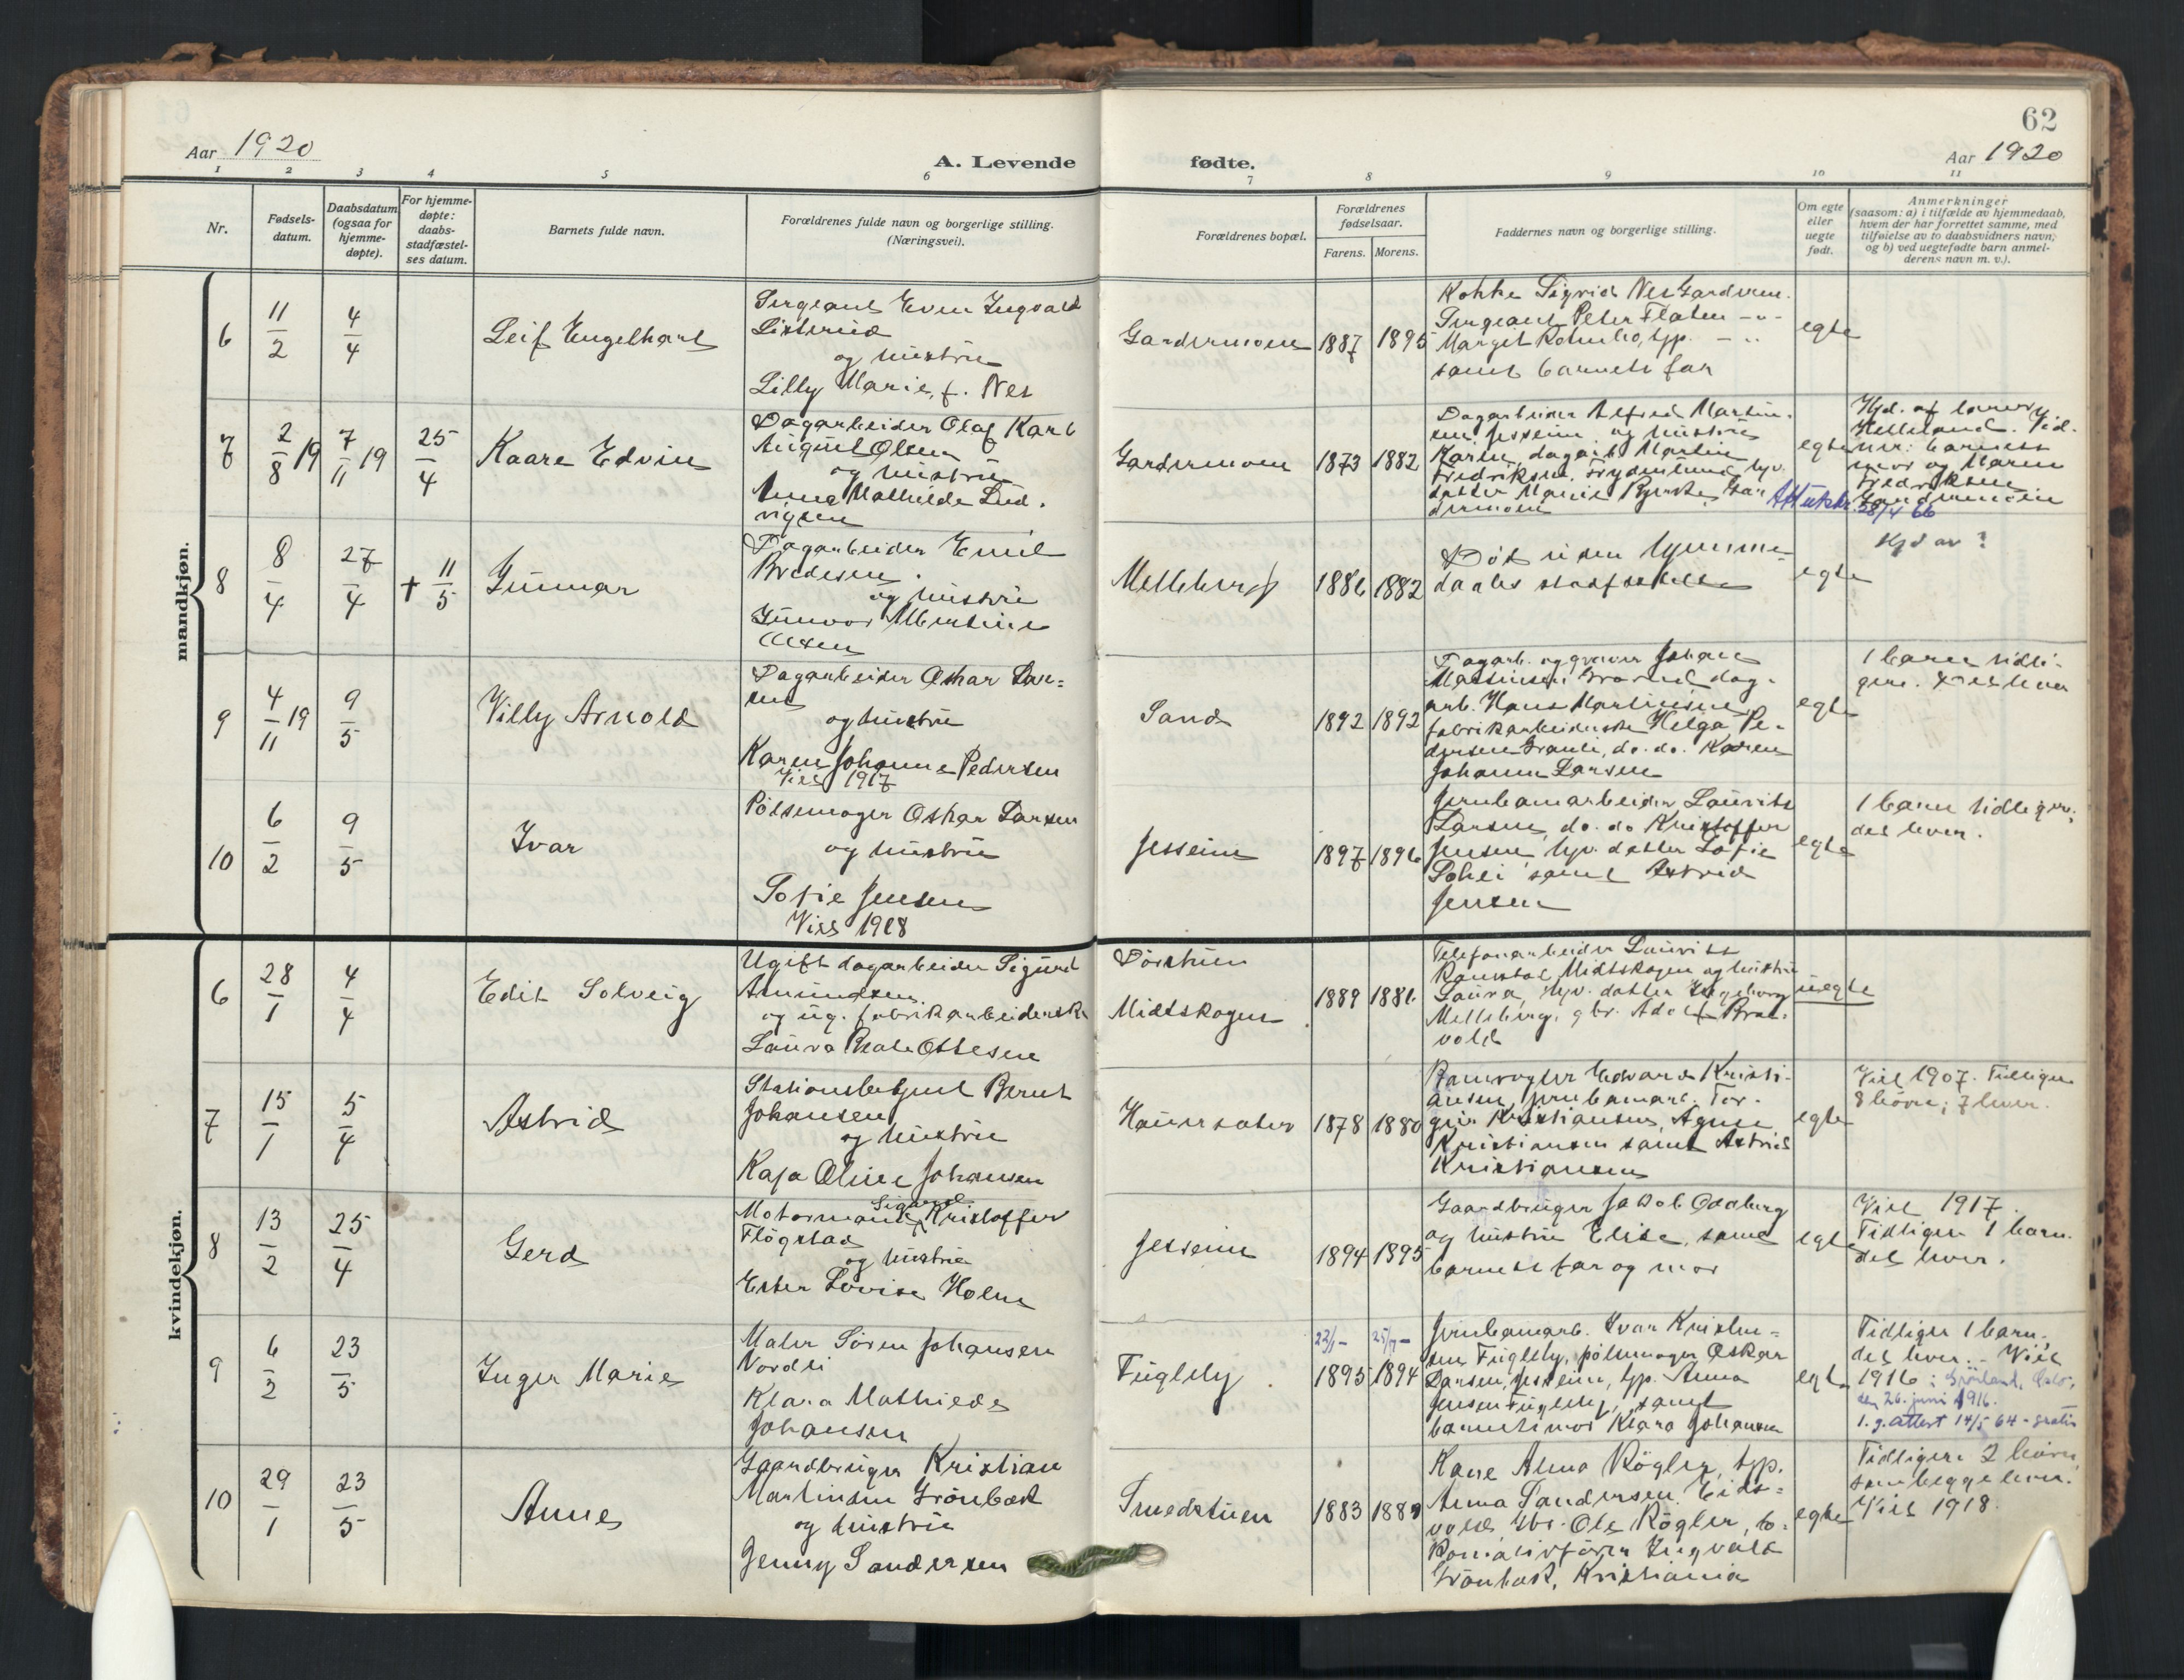 62
Aar 1920
A. Levende fødte.
Aar 1920
1 2 3 4 5 6 7 8 9 10 11
Nr.
Fødsels-
datum.
Daabsdatum
(ogsaa for
hjemme-
døpte).
For hjemme-
døpte:
daabs-
stadfæstel-
ses datum.
Barnets fulde navn.
Forældrenes fulde navn og borgerlige stilling.
(Næringsvei).
Forældrenes bopæl.
Forældrenes
fødselsaar.
Farens. Morens.
Faddernes navn og borgerlige stilling.
Om egte
eller
uegte
født.
Anmerkninger
(saasom: a) i tilfælde av hjemmedaab,
hvem der har forrettet samme, med
tilføielse av to daabsvidners navn;
og b) ved uegtefødte barn anmel-
derens navn m. v.).
mandkjøn.
6
11/2
4/4
Leif Engelhart
Sergeant Even Ingvald
Listerud
og hustru
Lilly Marie, f. Nes
Gardermoen
1887 1895
Kokke Sigrid Nes Gardermoen.
Sergeant Peter Flaten -"-
Margit Rotnebo, tjp. -"-
samt barnets far
egte
7
2/8 19
7/11 19
25/4
Kaare Edvin
Dagarbeider Olaf Karl
August Olsen
og hustru
Anna Mathilde Lud-
vigsen
Gardermoen
1873 1882
Dagarbeider Alfred Martin-
sen Jesseim og hustru
Karen, dagarb. Martin
Fredriksen Frydenlund, hjv.
datter Marie Gar-
dermoen
egte
Hjd. af lærer
Helleland. Vid-
ner: barnets
mor og Maren
Fredriksen
Gardermoen
Att utskr. 28/4 66
8
8/4
27/4
† 11/5
Gunnar
Dagarbeider Emil
Bredesen
og hustru
Gunvor Albertine
Olsen
Melleberg
1886 1882
Död uden hjemme-
daabs stadfæstelse
egte
Hjd av ?
9
4/11 19
9/5
Villy Arnold
Dagarbeider Oskar Lar-
sen
og hustru
Karen Johanne Pedersen
Viet 1917
Sand
1892 1892
Dagarb. og graver Johan
Martinsen dag-
arb. Hans Martinsen,
fabrikarbeiderske Helga Pe-
dersen do. do. Karen
Johanne Larsen
egte
1 barn tidli-
gere. Det lever
10
6/2
9/5
Ivar
Pölsemager Oskar Larsen
og hustru
Sofie Jensen
Viet 1918
Jesseim
1897 1896
Jernbanearbeider Laurits
Larsen, do. do Kristoffer
Jensen, hjv. datter Sofie
samt Astrid
Jensen
egte
1 barn tidligere,
det lever.
kvindekjøn.
6
28/1
4/4
Edit Solveig
Ugift dagarbeider Sigurd
Amundsen
og ug. fabrikarbeiderske
Laura Beate Ottesen
Dörstuen
Midtskogen
1889 1886
Telefonarbeider Laurits
Ramstad, Midtskogen og hustru
Laura, hjv. datter Ingeborg
Melleberg, gbr. Adolf Bra-
vold
uegte
7
15/1
5/4
Astrid
Stationsbetjent Bernt
Johansen
og hustru
Kaja Oline Johansen
Hauersæter
1878 1880
Banevogter Edvard Kristi-
ansen, jernbanearb. Tor-
geir Kristiansen, Agnes
Kristiansen samt Astrid
Kristiansen
egte
Viet 1907. Tidligere
8 börn; 7 lever.
8
13/2
25/4
Gerd
Motormand Sigurd Kristoffer
Flögstad
og hustru
Ester Lovise Holm
Jesseim
1894 1895
Gaardbruger Jakob Oddberg
og hustru Elise, samt
barnets far og mor
egte
Viet 1917.
Tidligere 1 barn.
det lever.
9
6/2
23/5
Inger Marie
Maler Sören Johansen
Nordli
Klara Mathilde
Johansen
Fuglely
22/1- 25/7-
1895 1894
Jernbanearb. Ivar Kristen-
sen Fuglely, pölsemager Oskar
Larsen, Jesseim, tjp. Anna
Jensen Fuglely, samt
barnets mor Klara Johansen
egte
Tidligere 1 barn.
det lever. - Viet
1916 i Grönland, Oslo,
den 26. juni 1916.
1. g. attest 14/5 64 - gratis
10
29/1
23/5
Anne
Gaardbruger Kristian
Martinsen Grönbæk
og hustru
Jenny Sandersen
Smedstuen
1883 1889
Kone Anna Rögler, tjp.
Anna Sandersen Eids-
vold, gbr. Ole Rögler, lo-
komotivförer Ingvald
Grönbæk, Kristiania
egte
Tidligere 2 börn,
som begge lever.
Viet 1918.